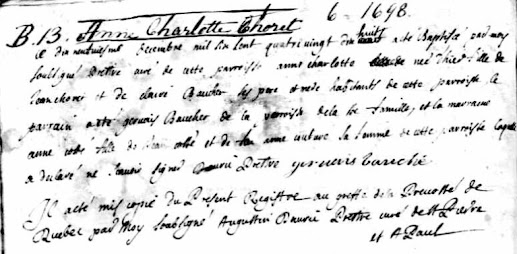 B. 13. Anne Charlotte Thoret 6 - 1698.
le dixneufuiesme decembre mil six cent quatre vingt dix huict a esté Baptisée par moy
soubsigné Prêtre curé de cette parroisse anne charlotte née d'hier fille de
Jean choret et de claire Baucher ses pere et mere habitants de cette parroisse le
parrain a esté gervais Baucher de la parroisse de la Ste famille, et la marraine
anne coté fille de Jean coté et de anne couture sa femme de cette parroisse laquelle
a declaré ne scavoir signer Dauric Prêtre gervais bauché
Il a esté mis copie du Present Registre au greffe de la Prevosté de
Quebec par Moy soubsigné Augustin Dauric Prêtre curé de St Pierre
et St Paul